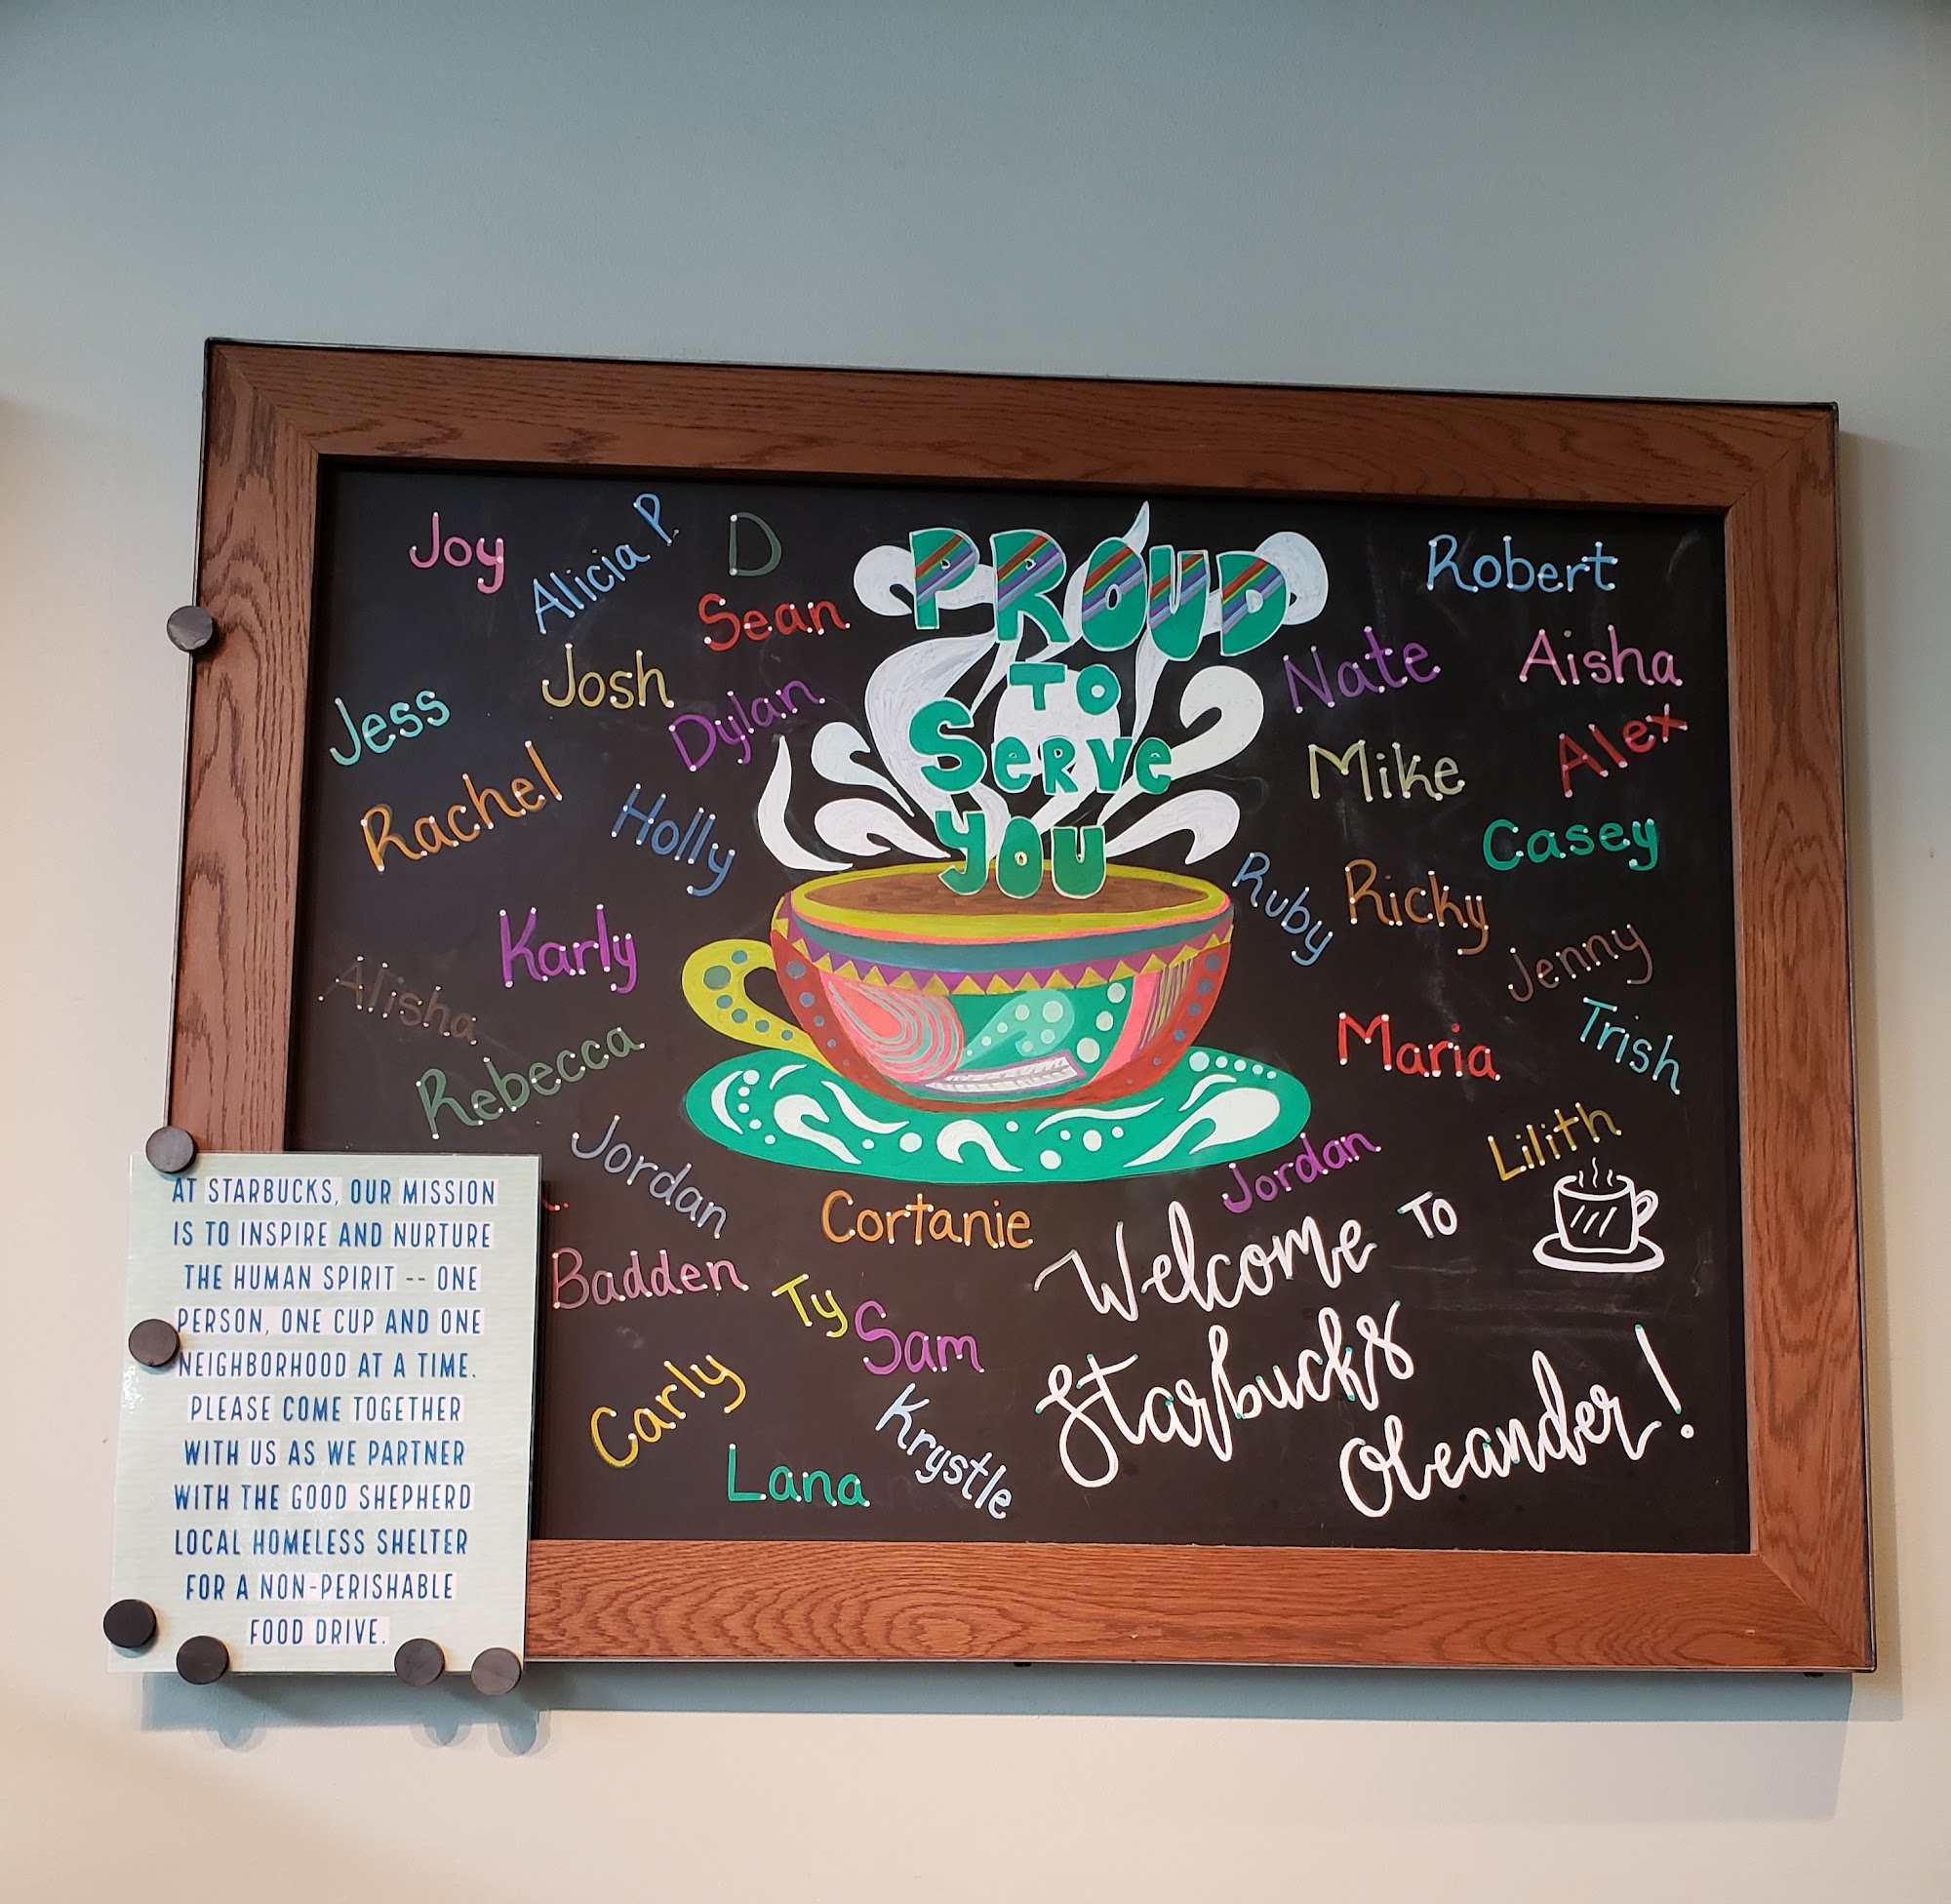 PROUD
TO
SERVE
YOU
Joy
Alicia P.
D
Sean
Josh
Jess
Dylan
Rachel
Holly
Karly
Alisha
Rebecca
Jordan
Robert
Nate
Aisha
Mike
Alex
Casey
Ruby
Ricky
Jenny
Maria
Trish
Lilith
Jordan
Cortanie
Badden
Ty
Sam
Carly
Krystle
Lana
Welcome To
Starbucks
Oleander!
AT STARBUCKS, OUR MISSION
IS TO INSPIRE AND NURTURE
THE HUMAN SPIRIT -- ONE
PERSON, ONE CUP AND ONE
NEIGHBORHOOD AT A TIME.
PLEASE COME TOGETHER
WITH US AS WE PARTNER
WITH THE GOOD SHEPHERD
LOCAL HOMELESS SHELTER
FOR A NON-PERISHABLE
FOOD DRIVE.